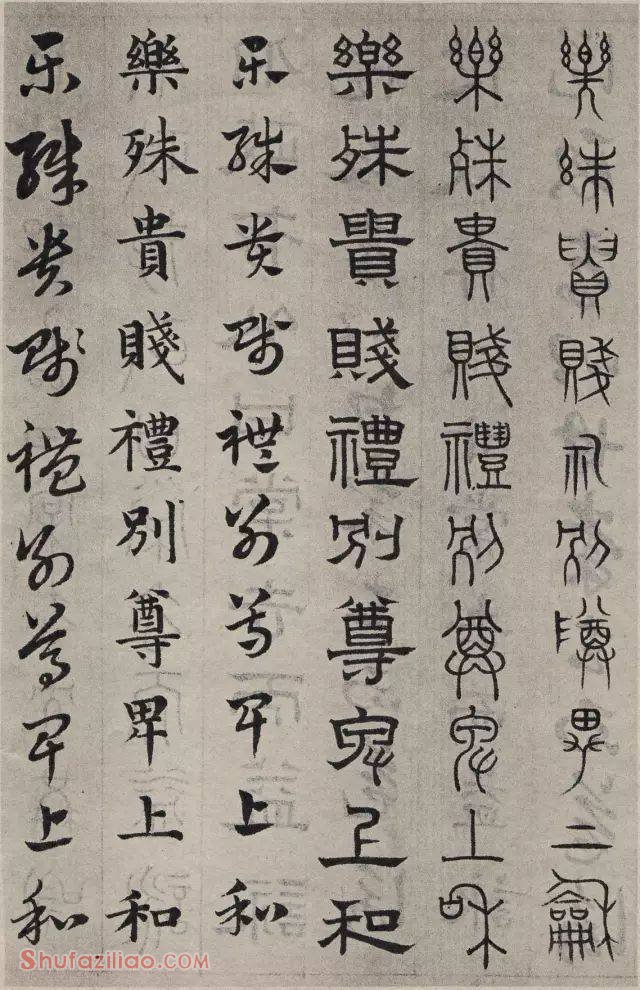 樂殊貴賤礼別尊卑上龢
樂殊貴賤禮別尊卑上和
樂殊貴賤禮別尊卑上和
樂殊貴賤禮別尊卑上和
樂殊貴賤禮別尊卑上和
樂殊貴賤禮別尊卑上和
Shufaziliao.com